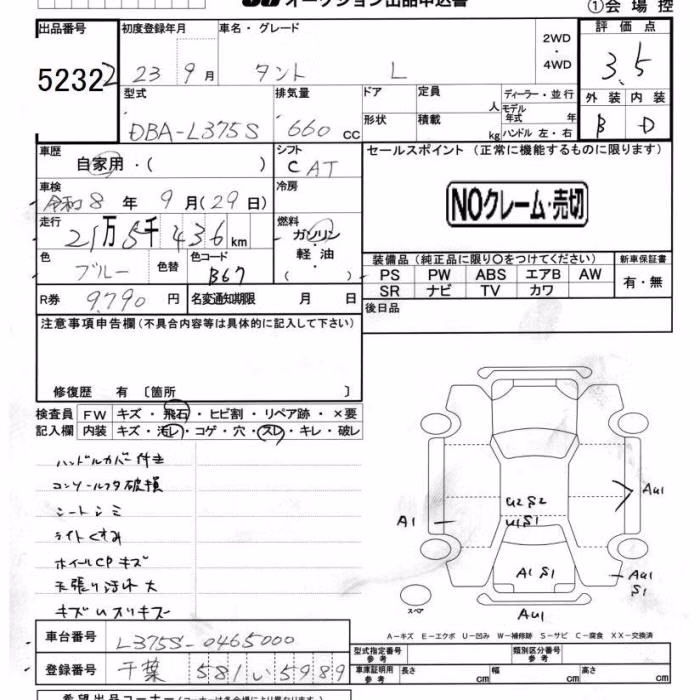 オークション出品申込書
①会場控
出品番号 初度登録年月 車名・グレード 2WD・4WD 評価点
52322 23年9月 タント L 3.5
型式 排気量 ドア 定員 人 ディーラー・並行 外装 内装
DBA-L375S 660cc 形状 積載 kg モデル年式 年 ハンドル 左・右 B D
車歴 シフト セールスポイント (正常に機能するものに限ります)
自家用・( ) CAT
車検 冷房
令和8年9月(29日) NOクレーム・売切
走行 燃料
21万5千436km ガソリン・軽油・( )
装備品(純正品に限り○をつけてください) 新車保証書
色 色替 色コード PS PW ABS エアB AW 有・無
ブルー B67 SR ナビ TV カワ
R券 9790円 名変通知期限 月 日 後日品
注意事項申告欄(不具合内容等は具体的に記入して下さい)
修復歴 有〔箇所 〕
検査員 FW キズ・飛石・ヒビ割・リペア跡・×要
記入欄 内装 キズ・汚レ・コゲ・穴・スレ・キレ・破レ
ハンドルカバー付き
コンソールフタ破損
シートシミ
ライトくすみ
ホイールCPキズ
天張り汚れ大
キズUスリキズ
U2 S2
AU1
A1
U1 S1
A1 S1
AU1 S1
スペア
AU1
A-キズ E-エクボ U-凹み W-補修跡 S-サビ C-腐食 XX-交換済
車台番号 L375S-0465000
型式指定番号 参考 類別区分番号 参考
登録番号 千葉 581 い 5989
車庫証明用 参考 長さ cm 幅 cm 高さ cm
希望出品コーナー